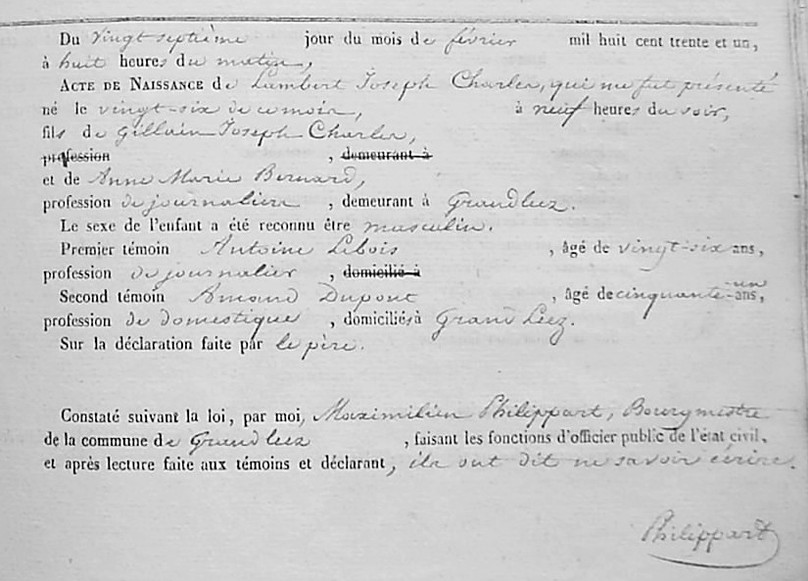 Du vingt septième jour du mois de février mil huit cent trente et un,
à huit heures du matin,
ACTE DE NAISSANCE de Lambert Joseph Charler, qui me fut présenté
né le vingt-six de ce mois, à neuf heures du soir,
fils de Gillain Joseph Charler,
profession , demeurant à
et de Anne Marie Bernard,
profession de journalière , demeurant à Grandleez.
Le sexe de l'enfant a été reconnu être masculin.
Premier témoin Antoine Lebois , âgé de vingt-six ans,
profession de journalier , domicilié à
Second témoin Amand Dupont , âgé de cinquante-un ans,
profession de domestique , domiciliés à Grand Leez.
Sur la déclaration faite par le père.
Constaté suivant la loi, par moi, Maximilien Philippart, Bourgmestre
de la commune de Grandleez , faisant les fonctions d'officier public de l'état civil.
et après lecture faite aux témoins et déclarant, ils ont dit ne savoir écrire.
Philippart